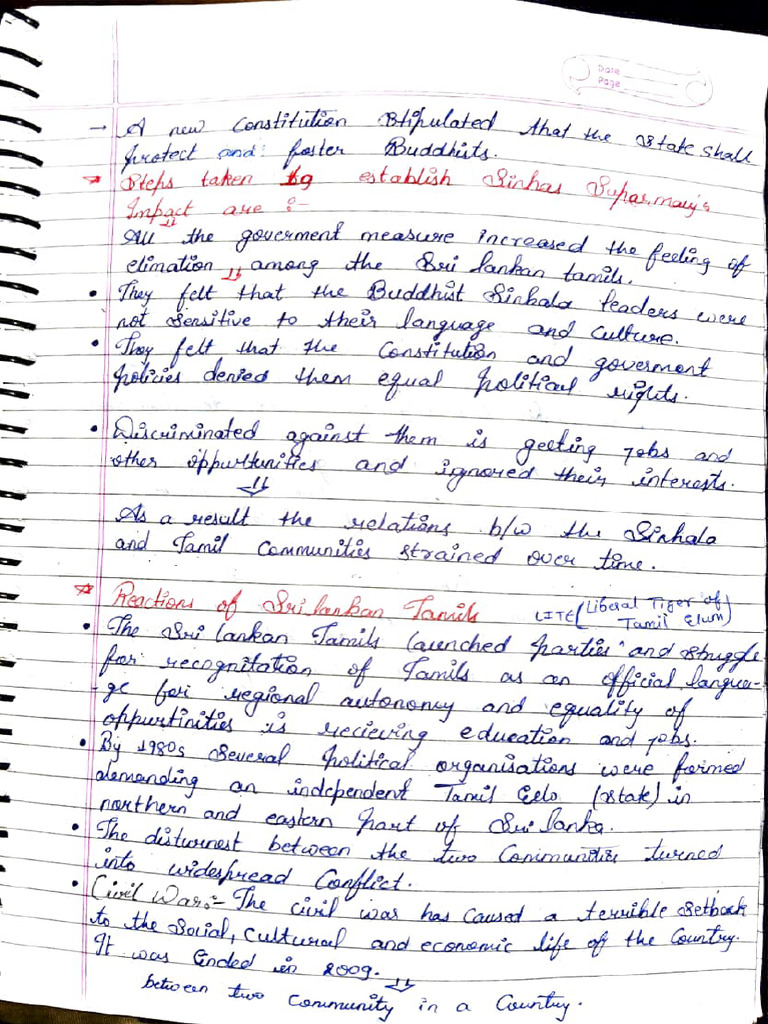 Date
Page
→ A new Constitution Stipulated that the State shall
protect and foster Buddhists.
Steps taken to establish Sinhas Supar.macy's
Impact are :-
All the goverment measure increased the feeling of
elination among the Sri lankan tamils.
• They felt that the Buddhist Sinhala leaders were
not sensitive to their language and culture.
• They felt that the Constitution and goverment
policies denied them equal political rights.
• Discriminated against them is geeting jobs and
other oppurtunities and ignored their interests.
As a result the relations b/w the Sinhala
and Tamil Communities strained over time.
* Reactions of Sri lankan Tamils
LITE (Liberal Tiger of
Tamil Elum)
• The Sri lankan Tamils launched parties and struggle
for recognitation of Tamils as an official langua-
-ge for regional autonomy and equality of
oppurtinities is recieving education and jobs.
• By 1980s several political organisations were formed
demanding an independent Tamil Eelo (state) in
northern and eastern part of Sri lanka.
• The disturnest between the two Communities turned
into widespread Conflict.
• Civil War:- The civil war has caused a terrible setback
to the social, cultural and economic life of the Country.
It was Ended in 2009.
between two Community in a Country.